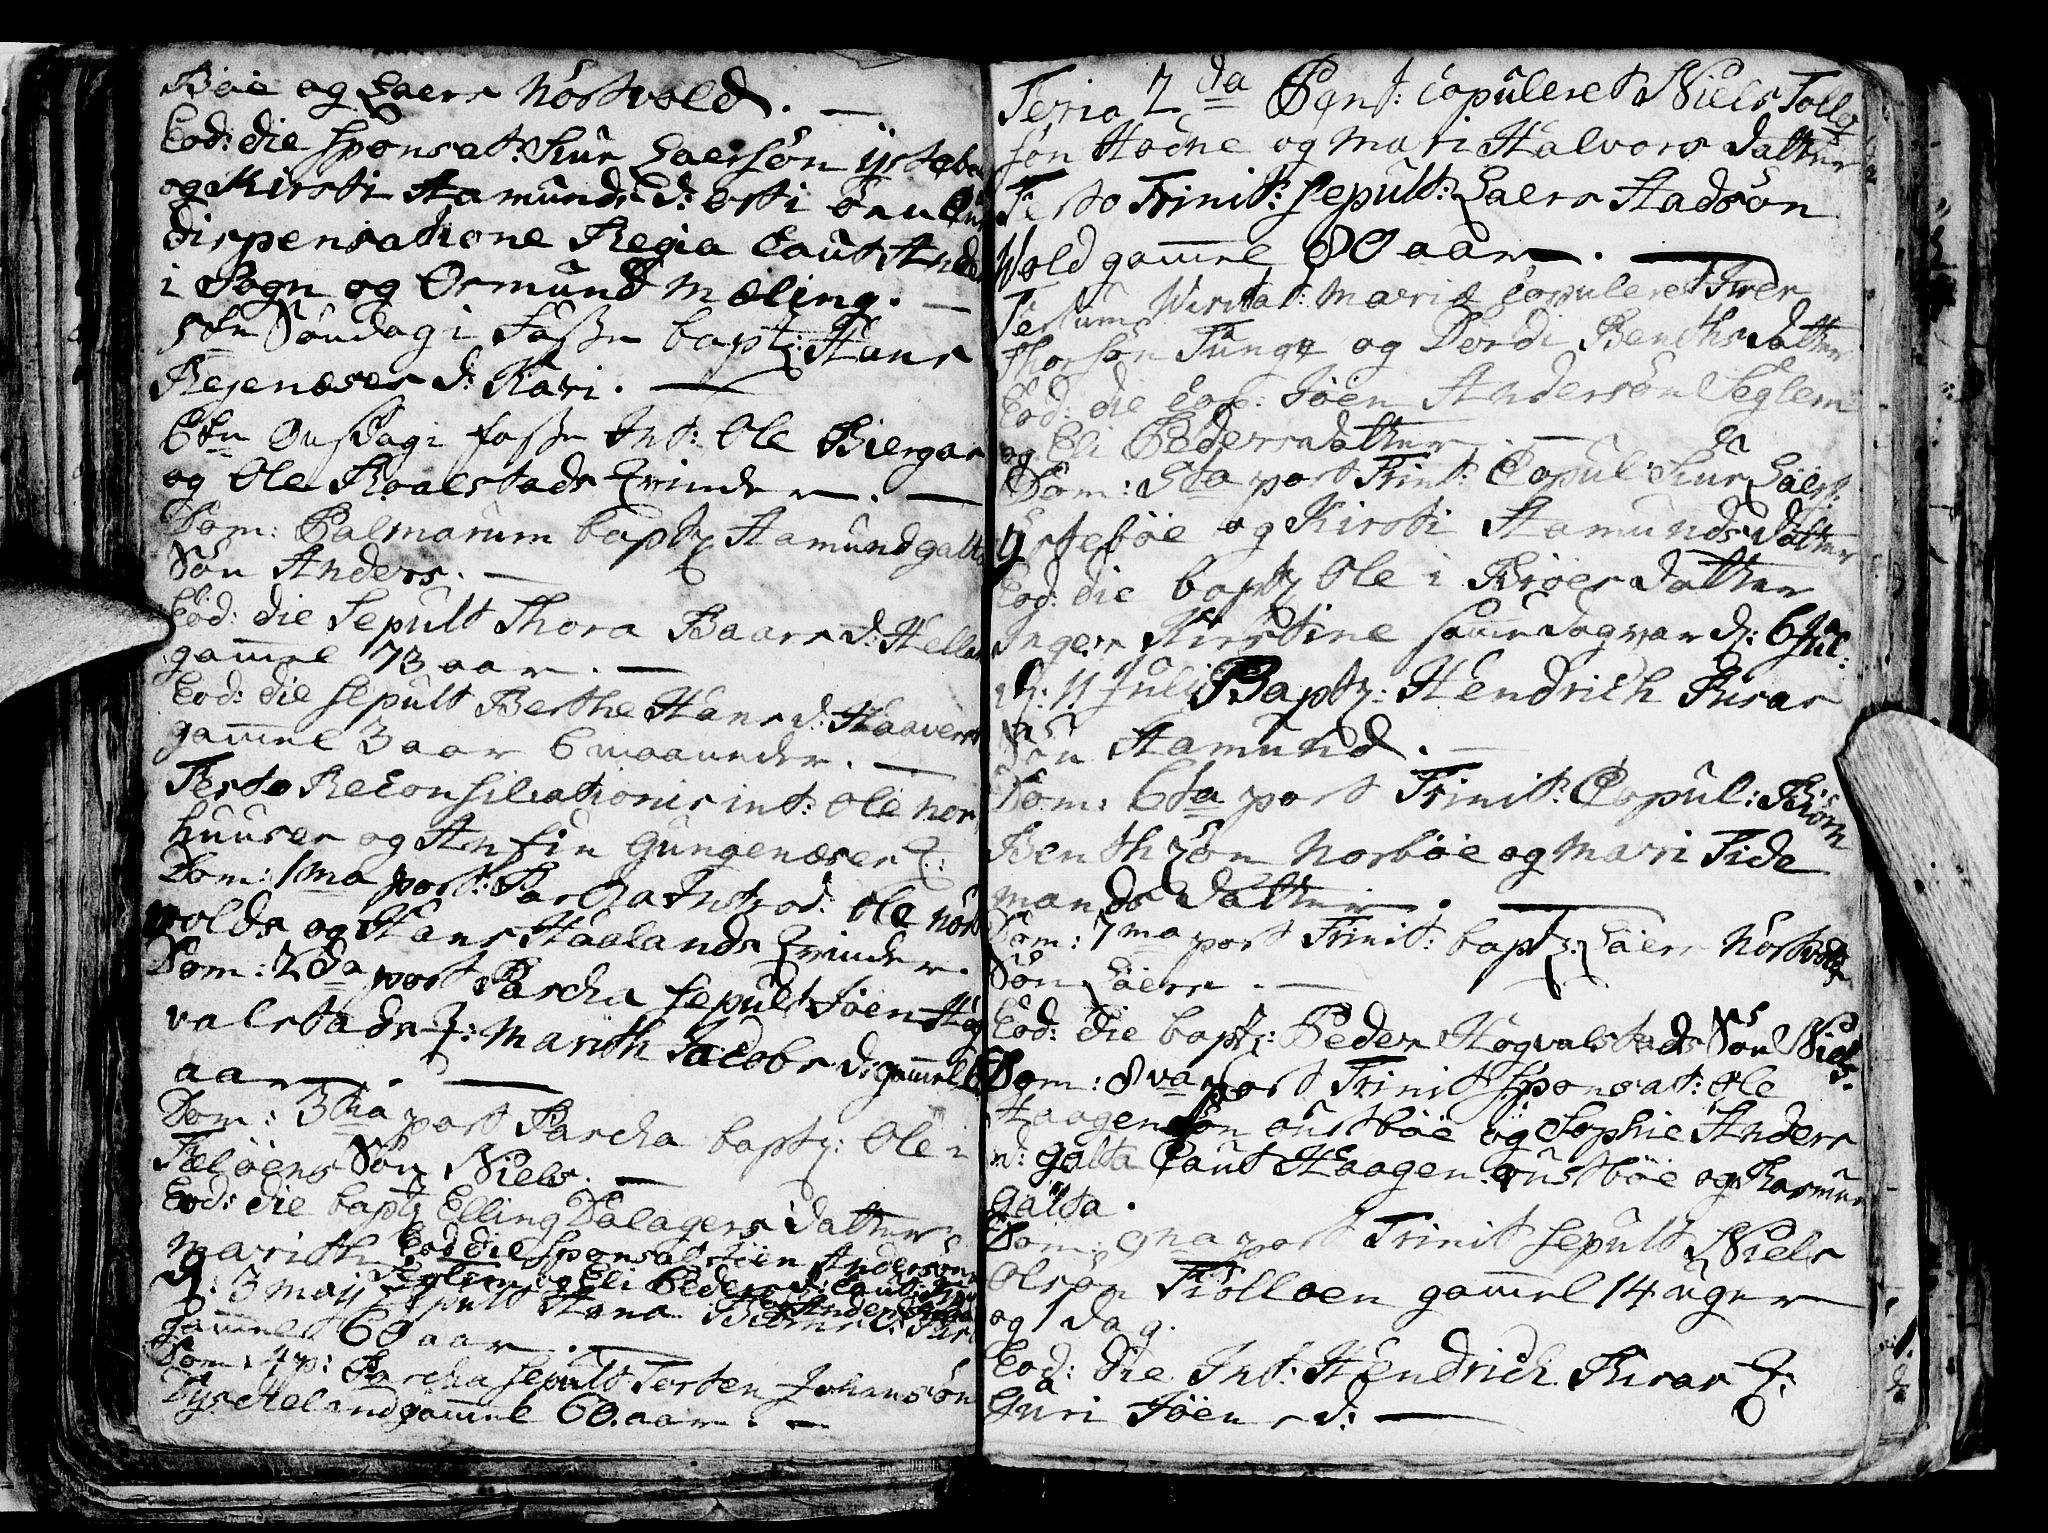 Bøe og Laers Nordtvold.
Eod: die sponsat: Siur Laersøn ÿstebøe
og Kirsti Aamunds d: Osti
dispensatione Regia Caut: Ande
i Sogn og Ormund Mæling.
5te Søndag i Faste bapt: Hans
Regenæses d: Kari.
6te Onsdag i faste Int: Ole Biergas
og Ole Roalstads Qvinder.
Dom: Palmarum baptz Aamund galta
Søn Anders.
Eod: die Sepult Thora Baars d: Hella
gaml 73 aar.
Eod: die sepult Berthe Hans d: Haavers
gaml 3 aar 6 maaneder.
Festo Reconsiliationis int: Ole Nor
huuses og Anfin Gungenæses Q:
Dom: 1ma post: Pascha Introd: Ole Nort
volds og Hans Haalands Qvinder.
Dom: 2da post Pascha sepult Jøen Hog
valstads Q: Marith Jacobs d: gaml
aar.
Dom: 3tia post Pascha baptz: Ole i
Fæløens Søn Niels.
Eod: die baptz Elling Dalagers datter
Marith. Eod die sponsat Jøen Andersøn
Seglem og Eli Peders d: Caut:
d: 3 Maij sepult Anna
gaml 60 aar.
Dom: 4 p: Pascha sepult Torsten Johansøn
Dys Aeland gaml 60 aar.
Feria 2da Pent: Copuleret Niels Tollef
søn Hodne og Mari Halvors datter
Festo Trinit: sepult: Laers Aadsøn
Wold gaml 80 aar.
Festum Visitat: Mariæ Copuleret Iver
Thorsøn Tunge og Dordi Benths datter
Eod: die Cop: Jøen Andersøn Seglem
og Eli Pedersdatter.
Dom: 5ta post Trinit: Copul: Siur Laers:
ÿstebøe og Kirsti Aamundsdatter
Eod: die baptz Ole i Krøes datter
Inger Kirstine samedag var d: 6 Jul:
d: 11 Julij Baptz: Hendrich Risas
Søn Aamund.
Dom: 6ta post Trinit: Copul: Biørn
Benthsøn Norbøe og Mari Tide
mands datter.
Dom: 7ma post Trinit: baptz: Laers Nortvolds
Søn Laers.
Eod: die baptz: Peder Hogvalstads Søn Niels.
Dom: 8va post Trinit sponsat: Ole
Haagensøn Austbøe og Sophie Anders
d: galta Caut Haagen Austbøe og Rasmus
Galta.
Dom: 9na post Trinit sepult Niels
Olsøn Fiølloen gaml 14 uger
og 1 dag.
Eod: die Int: Hendrich Risas Q:
Guri Jøens d: